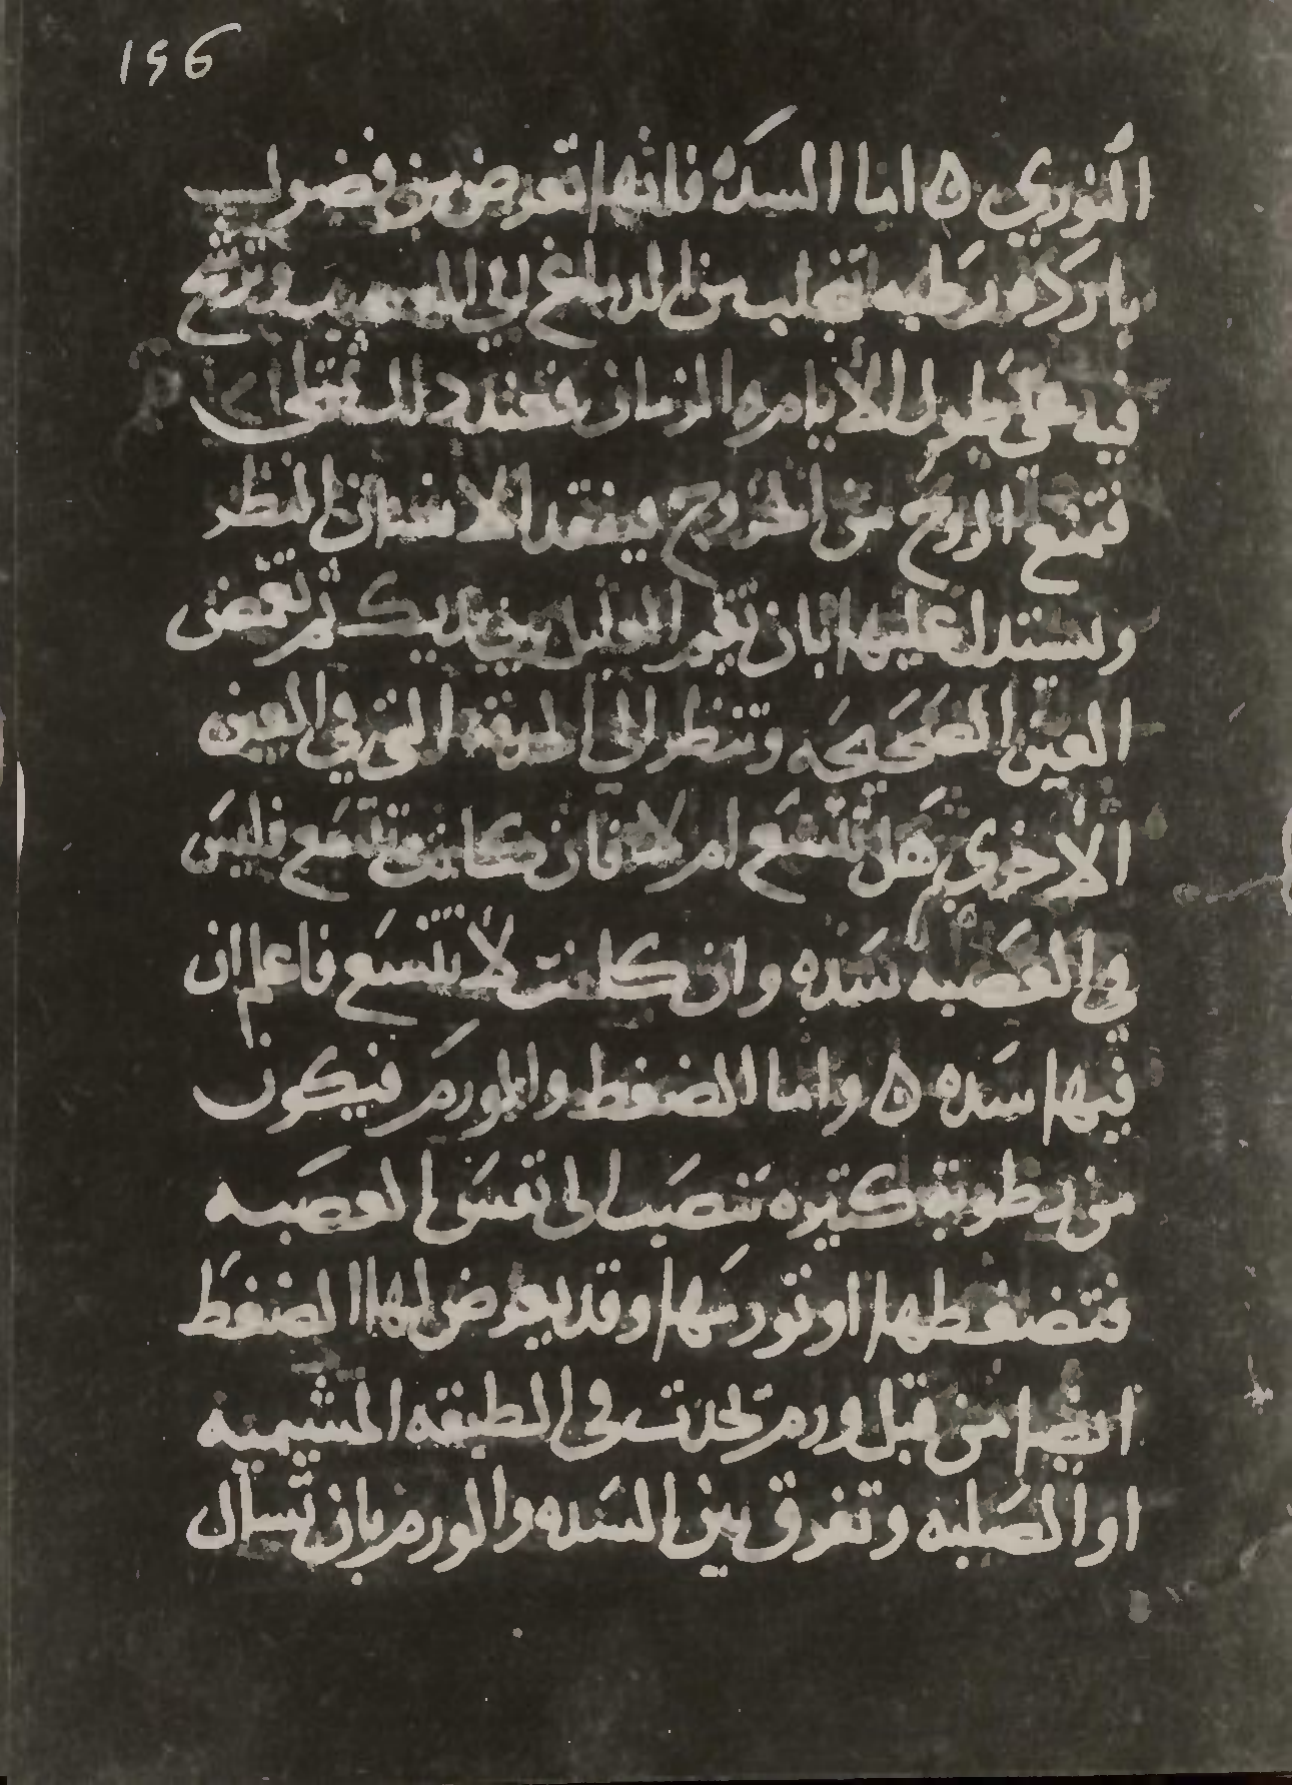 156
النوري ٥ اما السده فانها تعرض من فضول
بارده ورطبه تجلب من الدماغ الى العصبه وترشح
فيه على طول الايام والزمان
فتمنع الروح من الخروج فيفقد الانسان النظر
ويستدل عليها بان تقيم العليل بين يديك ثم تغمض
العين الصحيحه وتنظر الى الطبقه التي في العين
الاخرى هل تتسع ام لا فان كانت تتسع فليس
في العصبه سده وان كانت لا تتسع فاعلم ان
فيها سده ٥ واما الضغط والورم فيكون
من رطوبة كثيره تنصب الى نفس العصبه
فتضغطها او تورمها وقد يعرض لها الضغط
ايضا من قبل ورم تحدث في الطبقه المشيميه
او الصلبه وتفرق بين السده والورم بان تسال